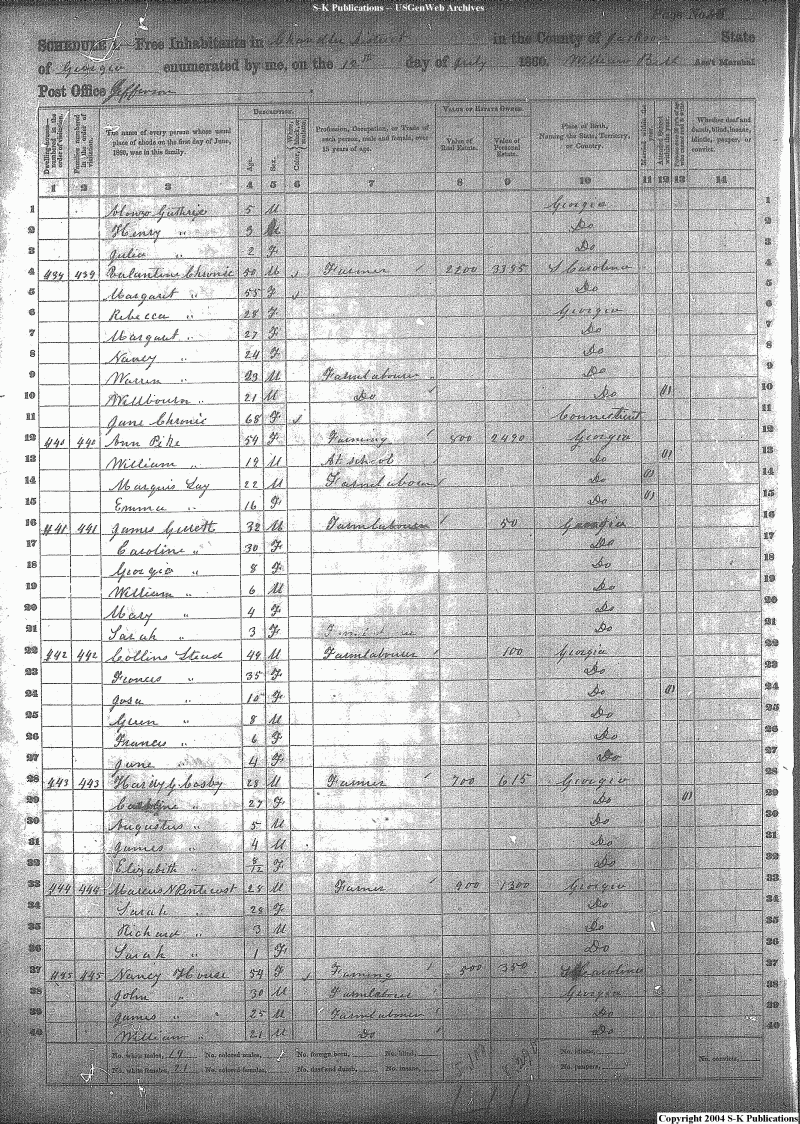 S-K Publications – USGenWeb Archives
Page No.
SCHEDULE 1.– Free Inhabitants in Chandler District in the County of Jackson State
of Georgia enumerated by me, on the 12th day of July 1860. William Bell Ass't Marshal
Post Office Jefferson
Dwelling-houses numbered in the order of visitation.
Families numbered in the order of visitation.
The name of every person whose usual place of abode on the first day of June, 1860, was in this family.
DESCRIPTION.
Age.
Sex.
Color, White, black, or mulatto.
Profession, Occupation, or Trade of each person, male and female, over 15 years of age.
VALUE OF ESTATE OWNED.
Value of Real Estate.
Value of Personal Estate.
Place of Birth, Naming the State, Territory, or Country.
Married within the year.
Attended School within the year.
Whether deaf and dumb, blind, insane, idiotic, pauper, or convict.
1 2 3 4 5 6 7 8 9 10 11 12 13 14
1 Alonzo Guthrie 5 M Georgia 1
2 Henry " 3 Do 2
3 Julia " 2 F Do 3
4 439 439 Balantine Chronic 50 M Farmer 2200 3395 S Carolina 4
5 Margaret " 55 F Do 5
6 Rebecca " 28 F Georgia 6
7 Margaret " 27 F Do 7
8 Nancy " 24 F Do 8
9 Warren " 23 M Farmlabourer Do 9
10 Willbourn " 21 M Do Do 10
11 Jane Chronic 68 F Connecticut 11
12 440 440 Ann Pike 54 F Farming 500 2490 Georgia 12
13 William " 19 M At school Do 13
14 Marquis Lay 22 M Farmlabourer Do 14
15 Emma " 16 F Do 15
16 441 441 James 32 M Farmlabourer 50 Georgia 16
17 Caroline " 30 F Do 17
18 Georgia " 8 F Do 18
19 William " 6 M Do 19
20 Mary " 4 F Do 20
21 Sarah " 3 F Do 21
22 442 442 Collins Stead 49 M Farmlabourer 100 Georgia 22
23 Frances " 35 F Do 23
24 " 10 F Do 24
25 " 8 M Do 25
26 Francis " 6 F Do 26
27 Jane " 4 F Do 27
28 443 443 Hardy G Cosby 28 M Farmer 700 615 Georgia 28
29 Caroline " 27 F Do 29
30 Augustus " 5 M Do 30
31 James " 4 M Do 31
32 Elizabeth " 8/12 F Do 32
33 444 444 Marcus N Pentecost 28 M Farmer 900 1300 Georgia 33
34 Sarah " 28 F Do 34
35 Richard " 3 M Do 35
36 Sarah " 1 F Do 36
37 445 445 Nancy House 54 F Farming 500 350 Carolina 37
38 John " 30 M Farmlabourer Georgia 38
39 James " 25 M Farmlabourer Do 39
40 William " 21 M Do Do 40
No. white males, 19 No. colored males, No. foreign born, No. blind, No. idiotic, No. convicts,
No. white females, 21 No. colored females, No. deaf and dumb, No. insane, No. paupers,
Copyright 2004 S-K Publications